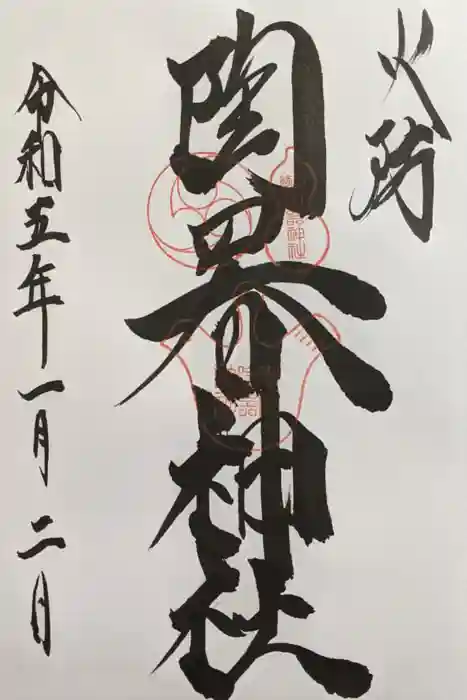 火防
陶器神社
令和五年一月二日